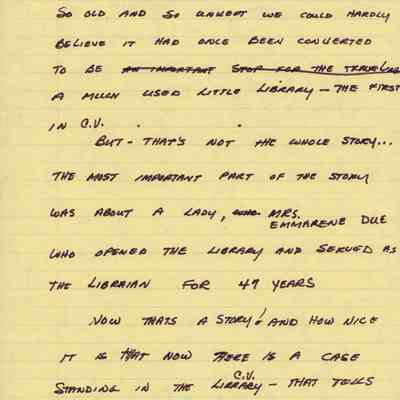 SO OLD AND SO UNKEPT WE COULD HARDLY
BELIEVE IT HAD ONCE BEEN CONVERTED
TO BE AN IMPORTANT STOP FOR THE TRAVELING
A MUCH USED LITTLE LIBRARY — THE FIRST
IN C.V.
BUT - THAT'S NOT THE WHOLE STORY...
THE MOST IMPORTANT PART OF THE STORY
WAS ABOUT A LADY, WHO MRS.
EMMARENE DUE
WHO OPENED THE LIBRARY AND SERVED AS
THE LIBRAIAN FOR 47 YEARS
NOW THATS A STORY! AND HOW NICE
IT IS THAT NOW THERE IS A CASE
STANDING IN THE C.V. LIBRARY — THAT TELLS